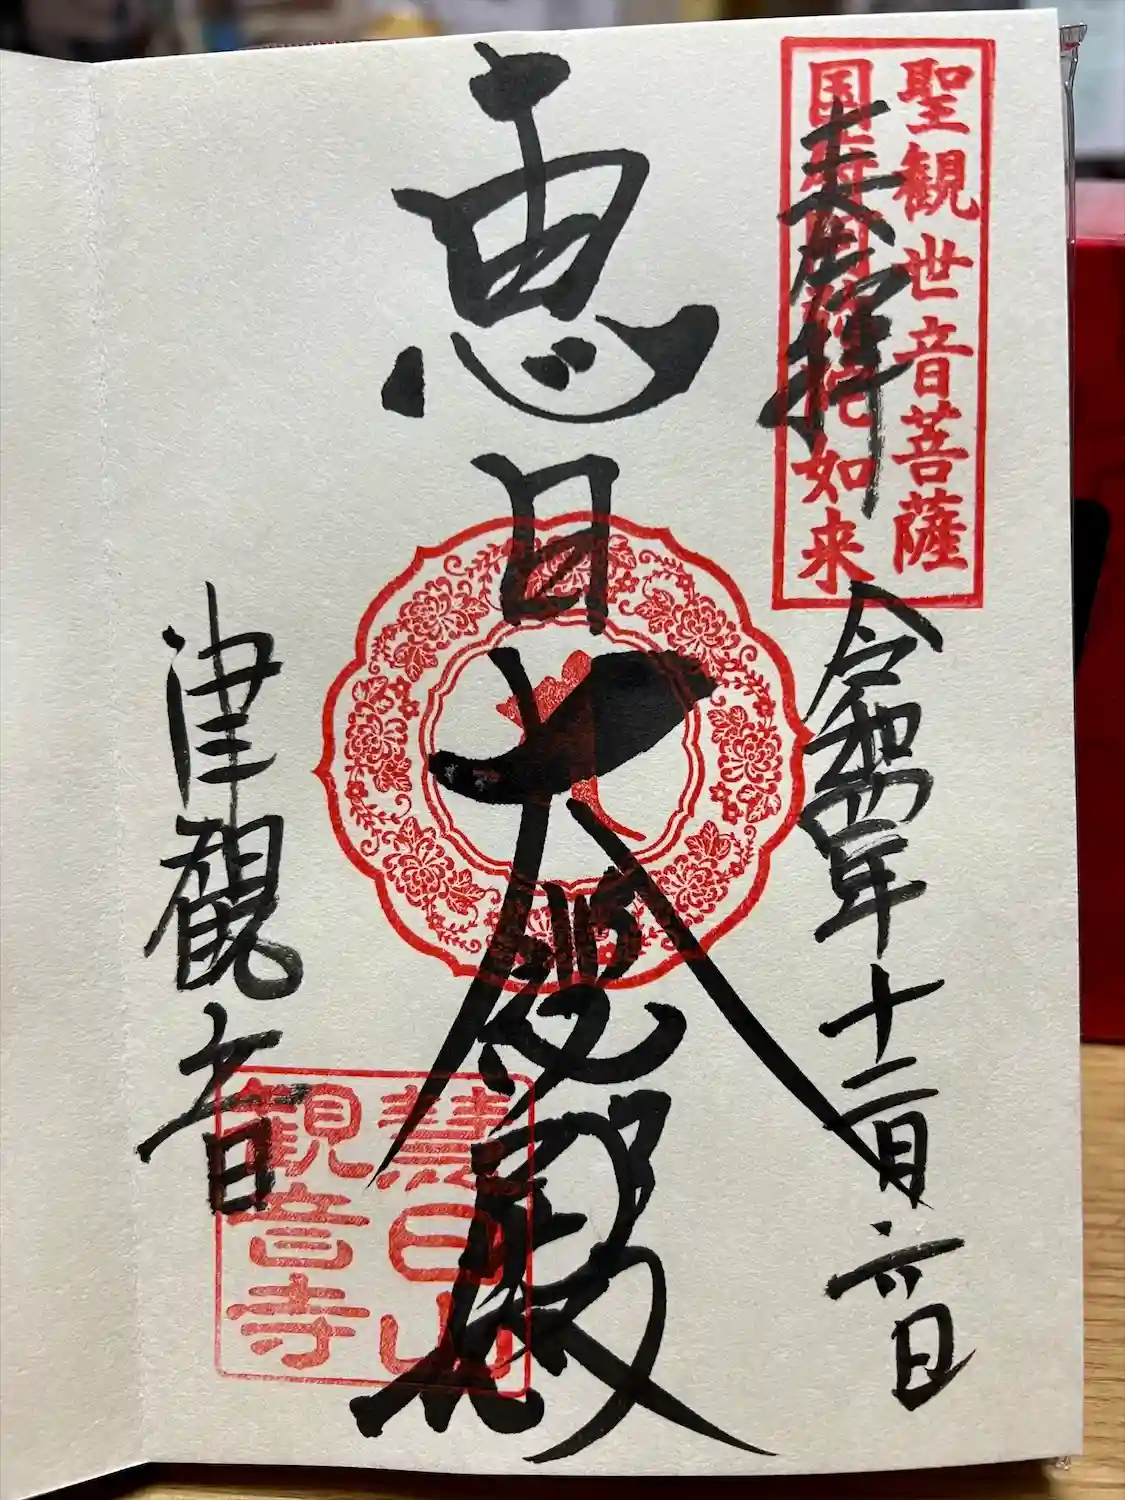 聖観世音菩薩
国府阿弥陀如来
奉拝
令和四年十二月六日
恵日大悲殿
津観音
慧日山
観音寺